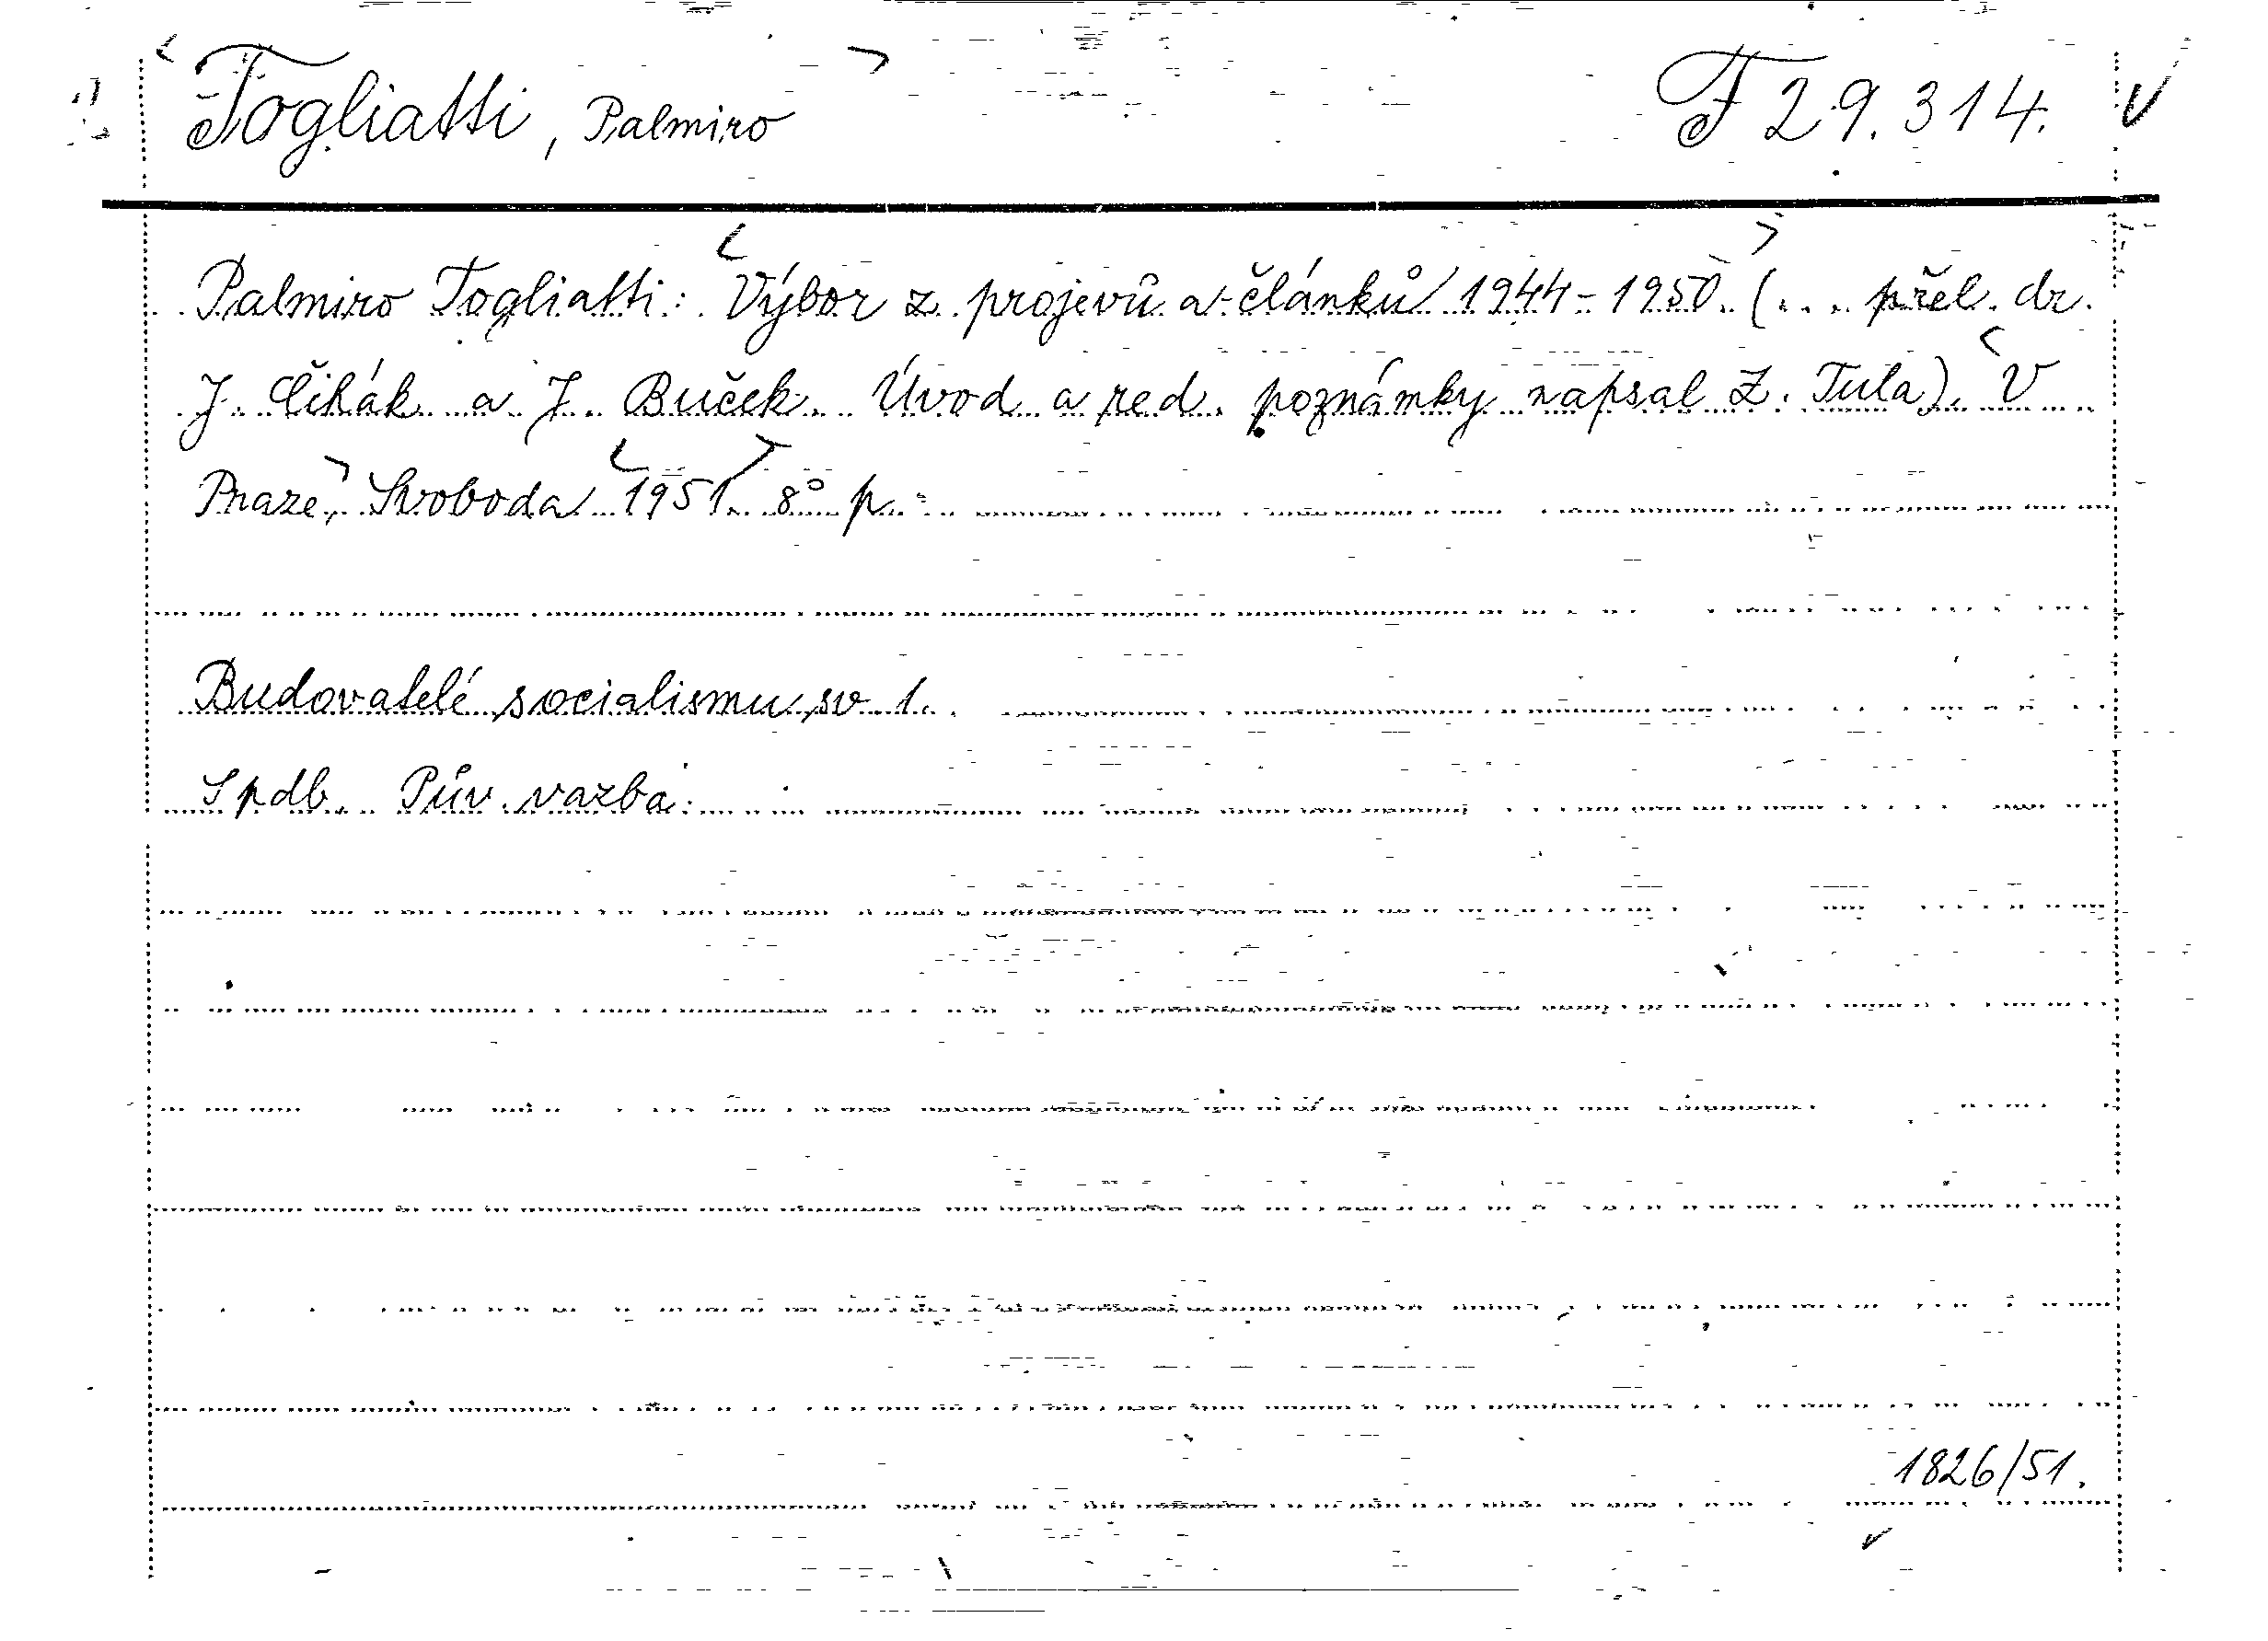 Togliatti, Palmiro F 29.314.
Palmiro Togliatti: Výbor z projevů a článků 1944-1950. (... přel. dr.
J. Čihák a J. Buček. Úvod a red. poznámky napsal Z. Tula). V
Praze, Svoboda 1951. 8° p.
Budovatelé socialismu sv 1.
Spdb. Pův. vazba.
1826/51.